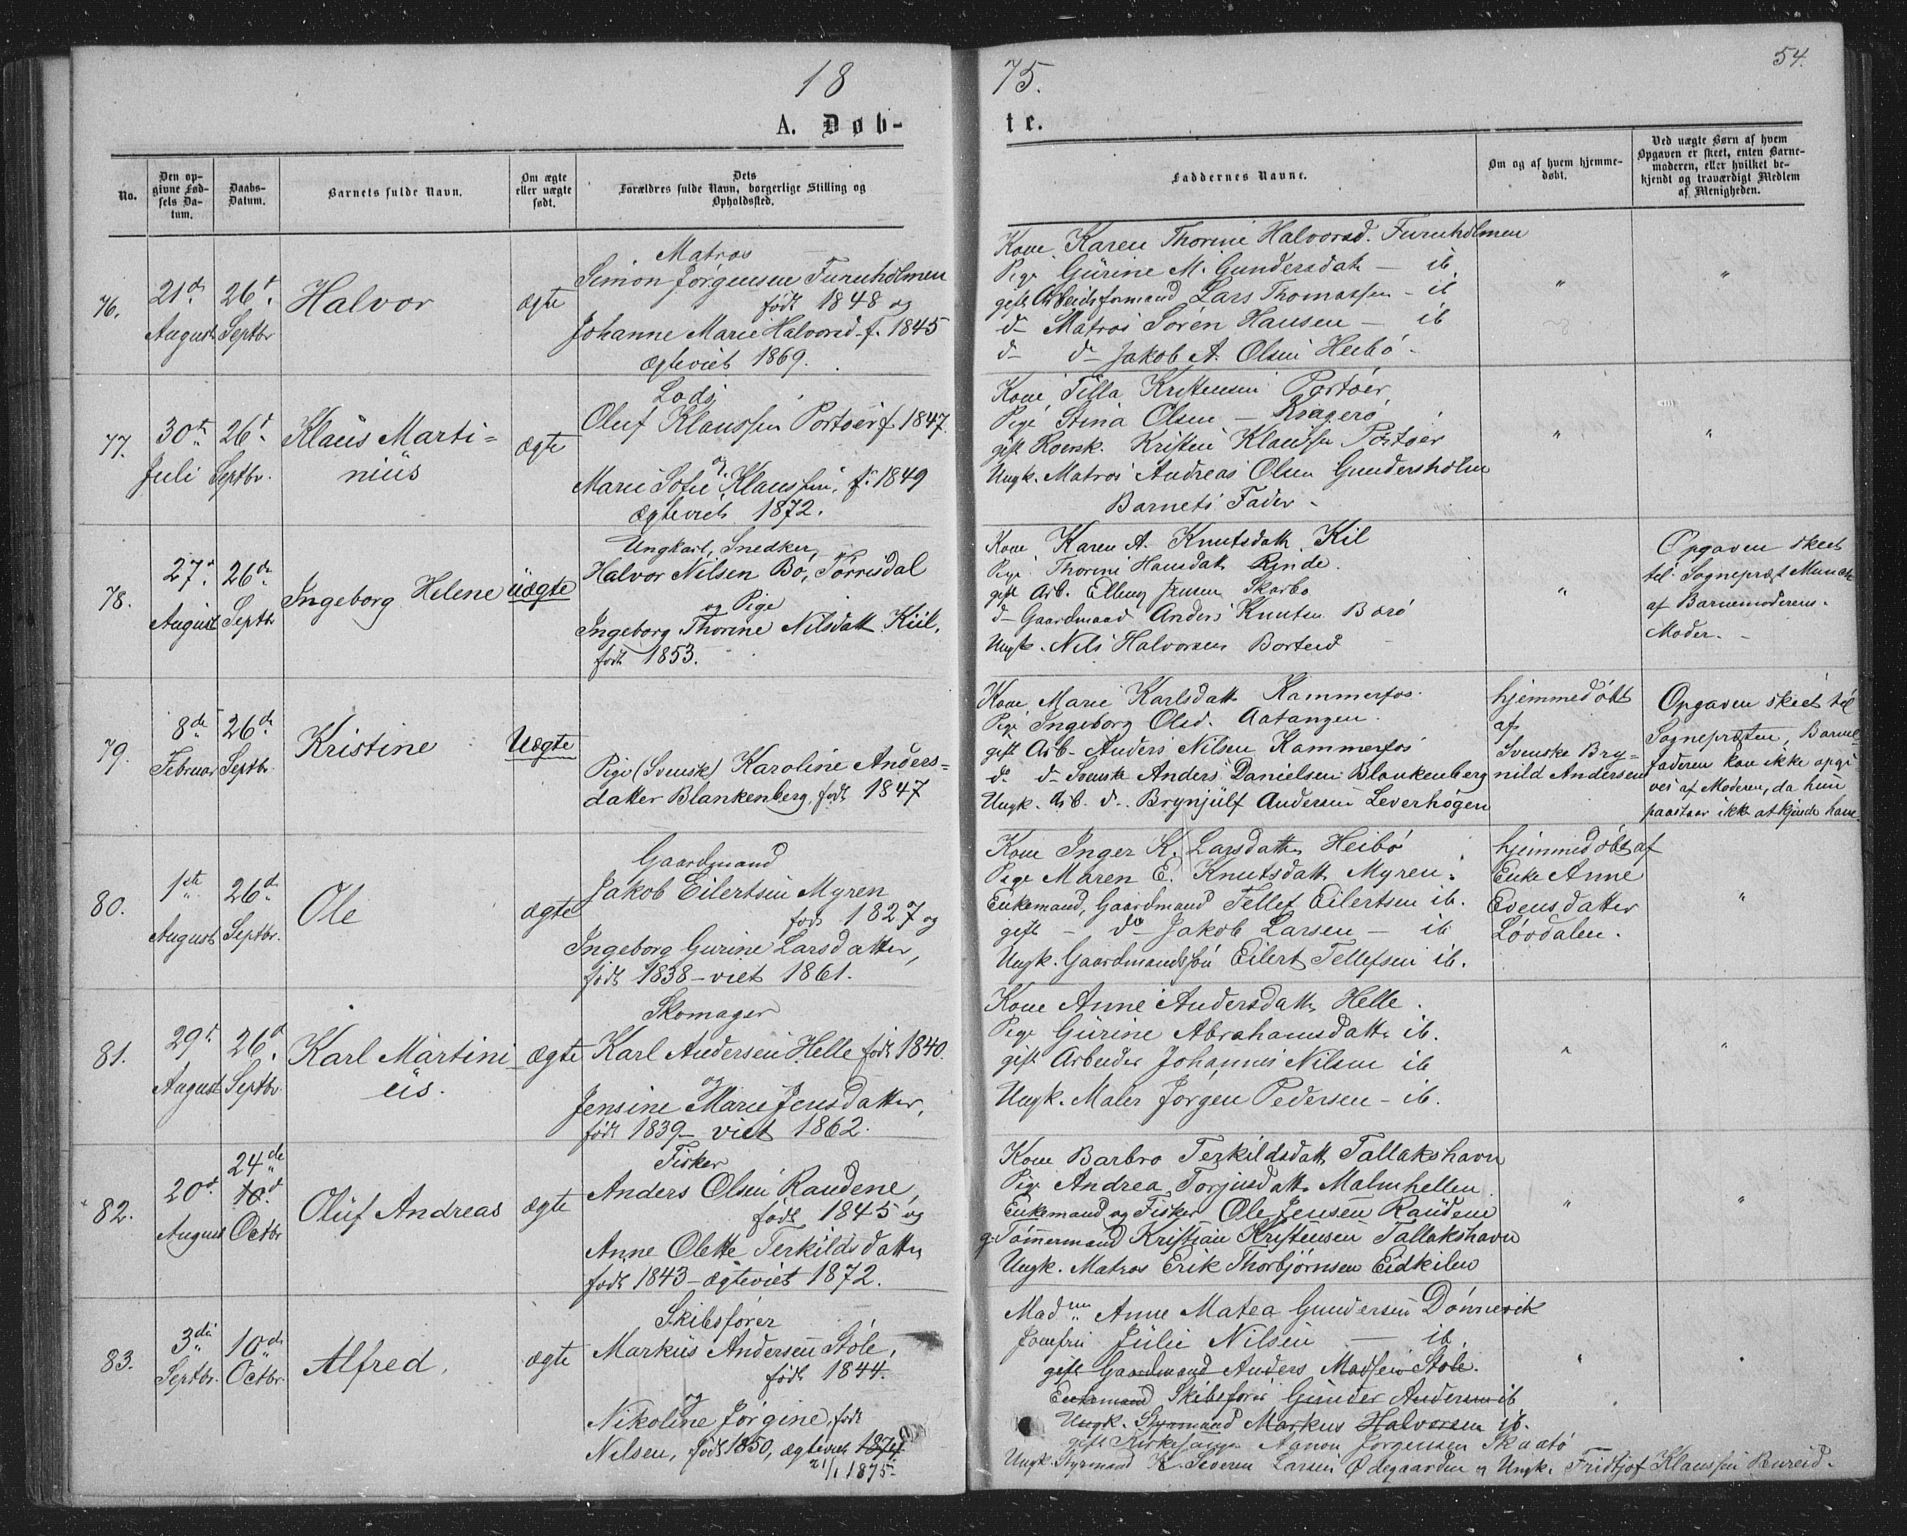 18
75.
54.
A. Døb-
te.
No.
Den op-
givne Fød-
sels Da-
tum.
Daabs-
Datum.
Barnets fulde Navn.
Om ægte
eller uægte
født.
Dets
Forældres fulde Navn, borgerlige Stilling og
Opholdssted.
Faddernes Navne.
Om og af hvem hjemme-
døbt.
Ved uægte Børn af hvem
Opgaven er skeet, enten Barne-
moderen, eller hvilket be-
kjendt og troværdigt Medlem
af Menigheden.
76.
21de
August
26d.
Septbr
Halvor
ægte
Matros
Simon Jørgensen Furuholmen
født 1848 og
Johanne Marie Halvorsd. f. 1845
Ægteviet 1869.
Kone Karen Thorine Halvorsd. Furuholmen
Pige Gurine M. Gundersdatr — ib.
gift Arbeidsformand Lars Thomassen — ib
d— Matros Søren Hansen — ib
d— d— Jakob A. Olsen Heibø —
"
"
77.
30te
Juli
26d.
Septbr.
Klaus Marti-
nius
ægte
Lods
Oluf Klaussen Portøer f. 1847.
og
Marie Sofie Klaussen, f. 1849
Ægteviet 1872.
Kone Tilla Kristensen Portøer
Pige Stina Olsen — Kragerø
gift Kristen Klaussen Portøer
Ungk. Matros Andreas Olsen Gundersholm
Barnets Fader —
"
"
78.
27d.
August
26de
Septbr
Ingeborg Helene
Uægte
Ungkarl, Snedker,
Halvor Nilsen Bø, Tørrisdal
og Pige
Ingeborg Thorine Nilsdatt. Kiil,
født 1853.
Kone Karen A. Knutsdatt. Kil
Pige Thorine Hansdatr Rinde.
gift Arb. Elling Jensen Skarbo
d— Gaardmand Anders Knutsen Barø
Ungk. Nils Halvorsen Borteid
"
Opgaven skeet
til Sogneprest Munch
af Barnemoderens
Moder. —
79.
8de
Februar
26de
Septbr.
Kristine
Uægte
Pige (Svensk) Karoline Anders-
datter Blankenberg, født 1847
Kone Marie Karlsdatt. Kammerfos.
Pige Ingeborg Olsd. Aatangen.
gift Arb. Anders Nilsen Kammerfos
do d— Svenske Anders Danielsen Blankenberg
Ungk. Arb. d.. Brynjulf Andersen Leverhøgen
hjemmedøbt
af
Svenske Bry-
nild Andersen
Opgaven skeet til
Sognepræsten, Barne-
faderen kan ikke opgi-
ves af Moderen, da hun
paastaar ikke at kjende ham.
80.
1ste
August
26de
Septbr.
Ole
ægte
Gaardmand
Jakob Eilertsen Myren
født 1827 og
Ingeborg Gurine Larsdatter,
født 1838 — viet 1861.
Kone Inger K. Larsdatt. Heibø
Pige Maren E. Knutsdatt. Myren.
Enkemand, Gaardmand Tellef Eilertsen ib.
gift — do Jakob Larsen — ib
Ungk. Gaardmandssøn Eilert Tellefsen ib.
hjemmedøbt af
Enke Anne
Evensdatter
Løvdalen.
"
81.
29d.
August
26d.
Septbr.
Karl Martini-
us.
ægte
Skomager
Karl Andersen Helle født 1840.
og
Jensine Marie Jensdatter,
født 1839 — viet 1862.
Kone Anne Andersdatt. Helle.
Pige Gurine Abrahamsdatt. ib.
gift Arbeider Johannes Nilsen ib
Ungk. Maler Jørgen Pedersen — ib.
"
"
82.
20d.
August
24de
10d.
Octbr
Oluf Andreas
ægte
Fisker
Anders Olsen Raudene,
født 1845 og
Anne Olette Terkildsdatter
født 1843 — Ægteviet 1872.
Kone Barbro Terkildsdatt. Tallakshavn
Pige Andrea Torjusdatt. Malmhellen
Enkemand og Fisker Ole Jensen Raudene
g. Tømmermand Kristian Kristensen Tallakshavn
Ungk. Matros Erik Thorbjørnsen Eidkilen
"
"
83.
3die
Septbr.
10de
Octbr.
Alfred.
ægte
Skibsfører
Markus Andersen Støle,
født 1844.
og
Nikoline Jørgine, født
Nilsen, født 1850, ægteviet 1874
21/1 1875.
Madme Anne Matea Gundersen Dønnevik
Jomfru Julie Nilsen — ib.
gift Gaardmand Anders Madsen Støle.
Enkemand Skibsfører Gunder Andersen ib
Ungk. Styrmand Markus Halvorsen ib.
gift Kirkesanger Aanon Jørgensen Skaatø
Ungk. Styrmand K. Severin Larsen Ødegaarden og Ungk. Fridtjof Klaussen Bureid.
"
"